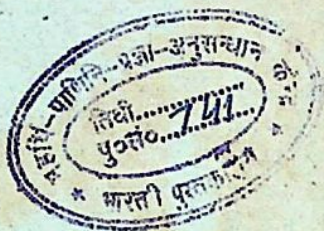 महर्षि-पाणिनि-प्रज्ञा-अनुसन्धान केन्द्र
तिथी.............
पु०सं०...741...
* भारती पुस्तकालय *